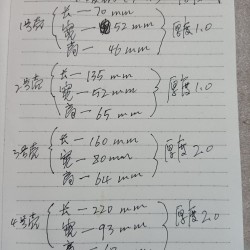 长 — 70 mm
1号壳 宽 — 52 mm 厚度 1.0
高 — 46 mm
长 — 135 mm
2号壳 宽 — 52 mm 厚度 1.0
高 — 65 mm
长 — 160 mm
3号壳 宽 — 80 mm 厚度 2.0
高 — 64 mm
长 — 220 mm
4号壳 宽 — 93 mm 厚度 2.0
高 — mm